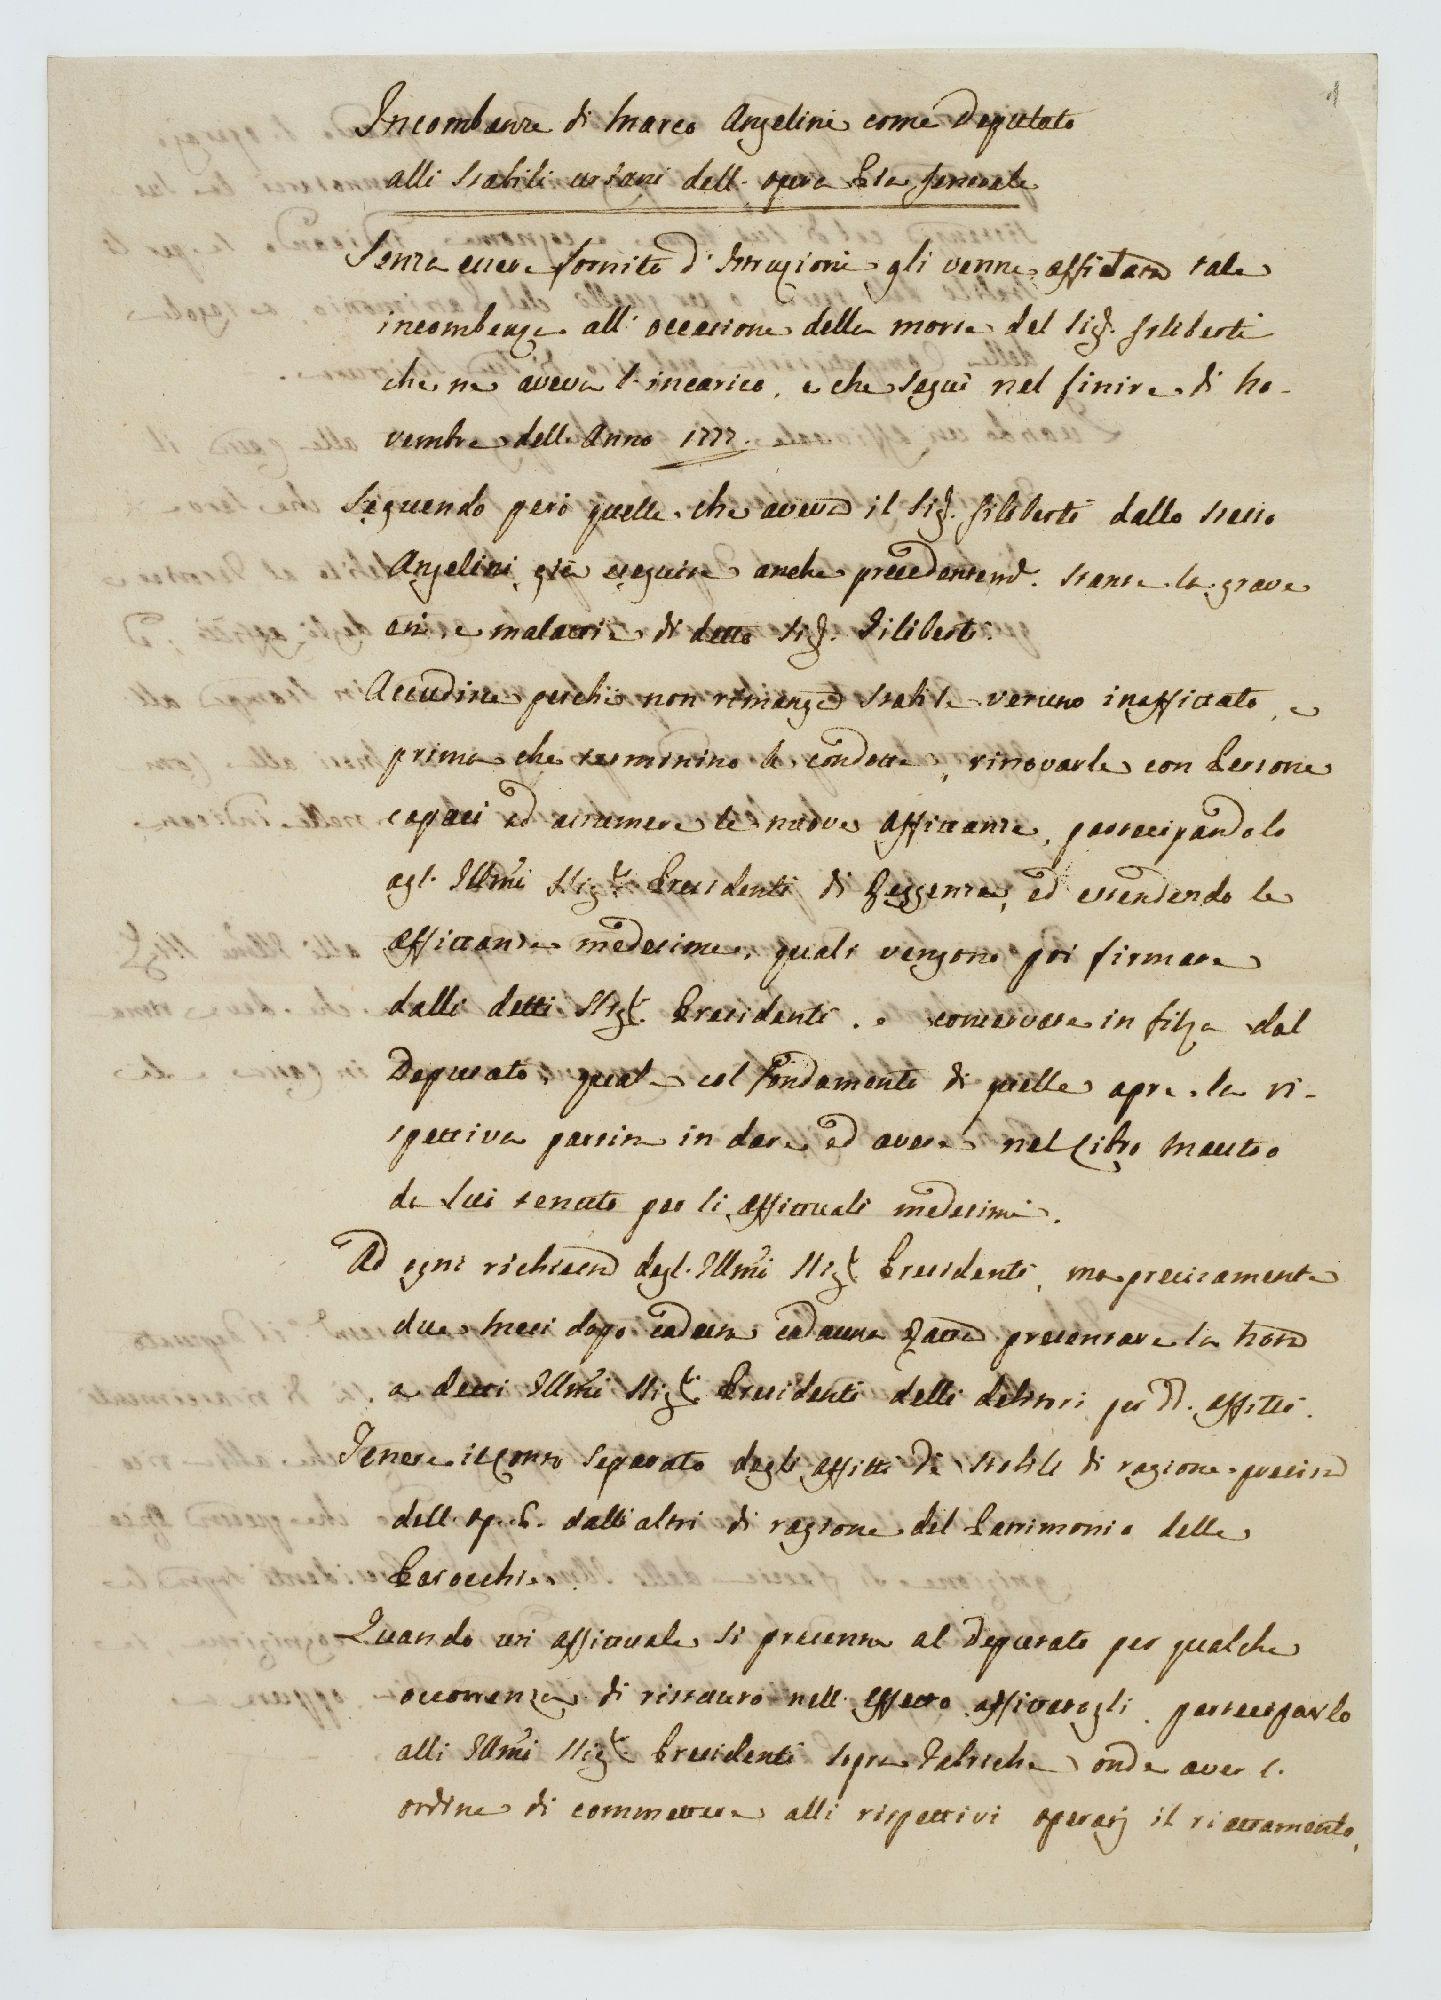 1
Incombenze di Marco Angelini come Deputato
alli Stabili urbani dell' opera Pia Generale
Senza essere fornito d'Istruzioni gli venne affidata tale
incombenza all' occasione della morte del Sigr. Filiberti
che ne aveva l'incarico, e che seguì nel finire di No-
vembre dell'Anno 1777.
Seguendo però quelle che aveva il Sigr. Filiberti dallo stesso
Angelini già eseguite anche precedentemte. stante la grave
età e malattie di detto Sigr. Filiberti.
Accudire perchè non rimanga stabile veruno inaffittato, e
prima che terminino le condotte, rinnovarle con Persone
capaci ad assumere le nuove affittanze, partecipandolo
agl' Illmi SSigri Presidenti di Reggenza, ed estendendo le
affittanze medesime, quali vengono poi firmate
dalli detti SSigri Presidenti, e conservate in filza dal
Deputato, quale col fondamento di quelle apre la ri-
spettiva partita in dare ed avere nel Libro Mastro
da lui tenuto per li affittuali medesimi.
Ad ogni richiesta degl' Illmi SSigri Presidenti, ma precisamente
due Mesi dopo caduta cadauna Ratta presentare la Nota
a detti Illmi SSigri Presidenti delli debitori per dd. affitti.
Tenere il Conto separato degli affitti di Stabili di ragione precisa
dell' Op. P. dalli altri di ragione del Patrimonio delle
Parocchie.
Quando un affittuale si presenta al Deputato per qualche
occorrenza di ristauro nell' effetto affittatogli, parteciparlo
alli Illmi SSigri Presidenti sopra Fabriche onde aver l'
ordine di commettere alli rispettivi operarj il riattamento,